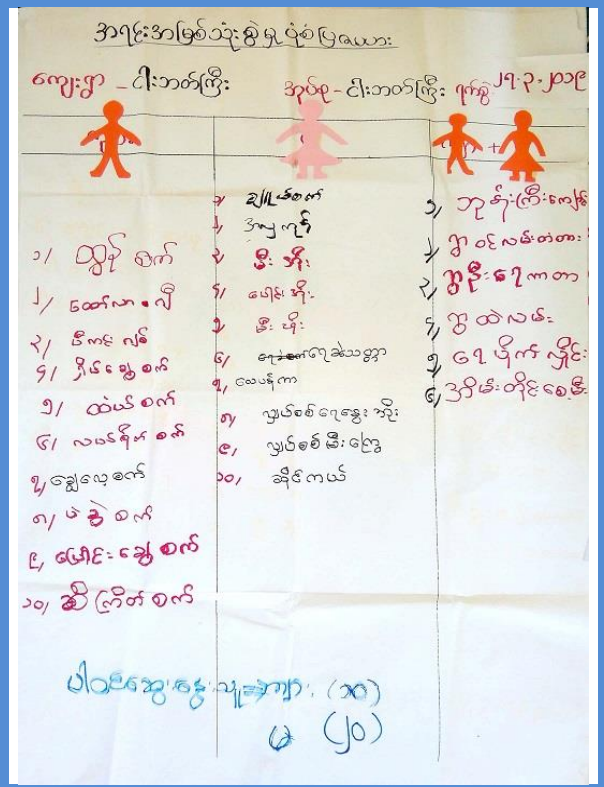 အရင်းအမြစ်သုံးစွဲမှု ပုံစံပြဇယား
ကျေးရွာ - ငါးဘတ်ကြီး အုပ်စု - ငါးဘတ်ကြီး ရက်စွဲ ၂၇.၃.၂၀၁၉
+
၁/ ထွန် စက်
၂/ ထော်လာဂျီ
၃/ မီးကင်း လစ်
၄/ ရိတ်ချွေ စက်
၅/ ထယ် စက်
၆/ လယ်စိုက် စက်
၇/ ချွေလှေ့စက်
၈/ ပဲခွဲ စက်
၉/ ပြောင်း ချွေ စက်
၁၀/ ဆီ ကြိတ် စက်
၁/ ချုပ်စက်
၂/
၃/ မီး အိုး
၄/ ပေါင်း အိုး
၅/ မီး ဖိုး
၆/ ရေခဲသေတ္တာ
၇/ လေပန်ကာ
၈/ လျှပ်စစ်ရေနွေး အိုး
၉/ လျှပ်စစ်မီးကြွေ
၁၀/ ဆိုင်ကယ်
၁/ ဘုန်းကြီးကျောင်း
၂/ ရွာ ဝင် လမ်းတံတား
၃/ ရွာဦး ရေကာတာ
၄/ ရွာ ထဲလမ်း
၅/ ရေ ပိုက် လှိုင်း
၆/ အိမ်တိုင်စေ့မီး
ပါဝင်ဆွေးနွေးသူ ကျား (၁၀)
မ (၂၀)